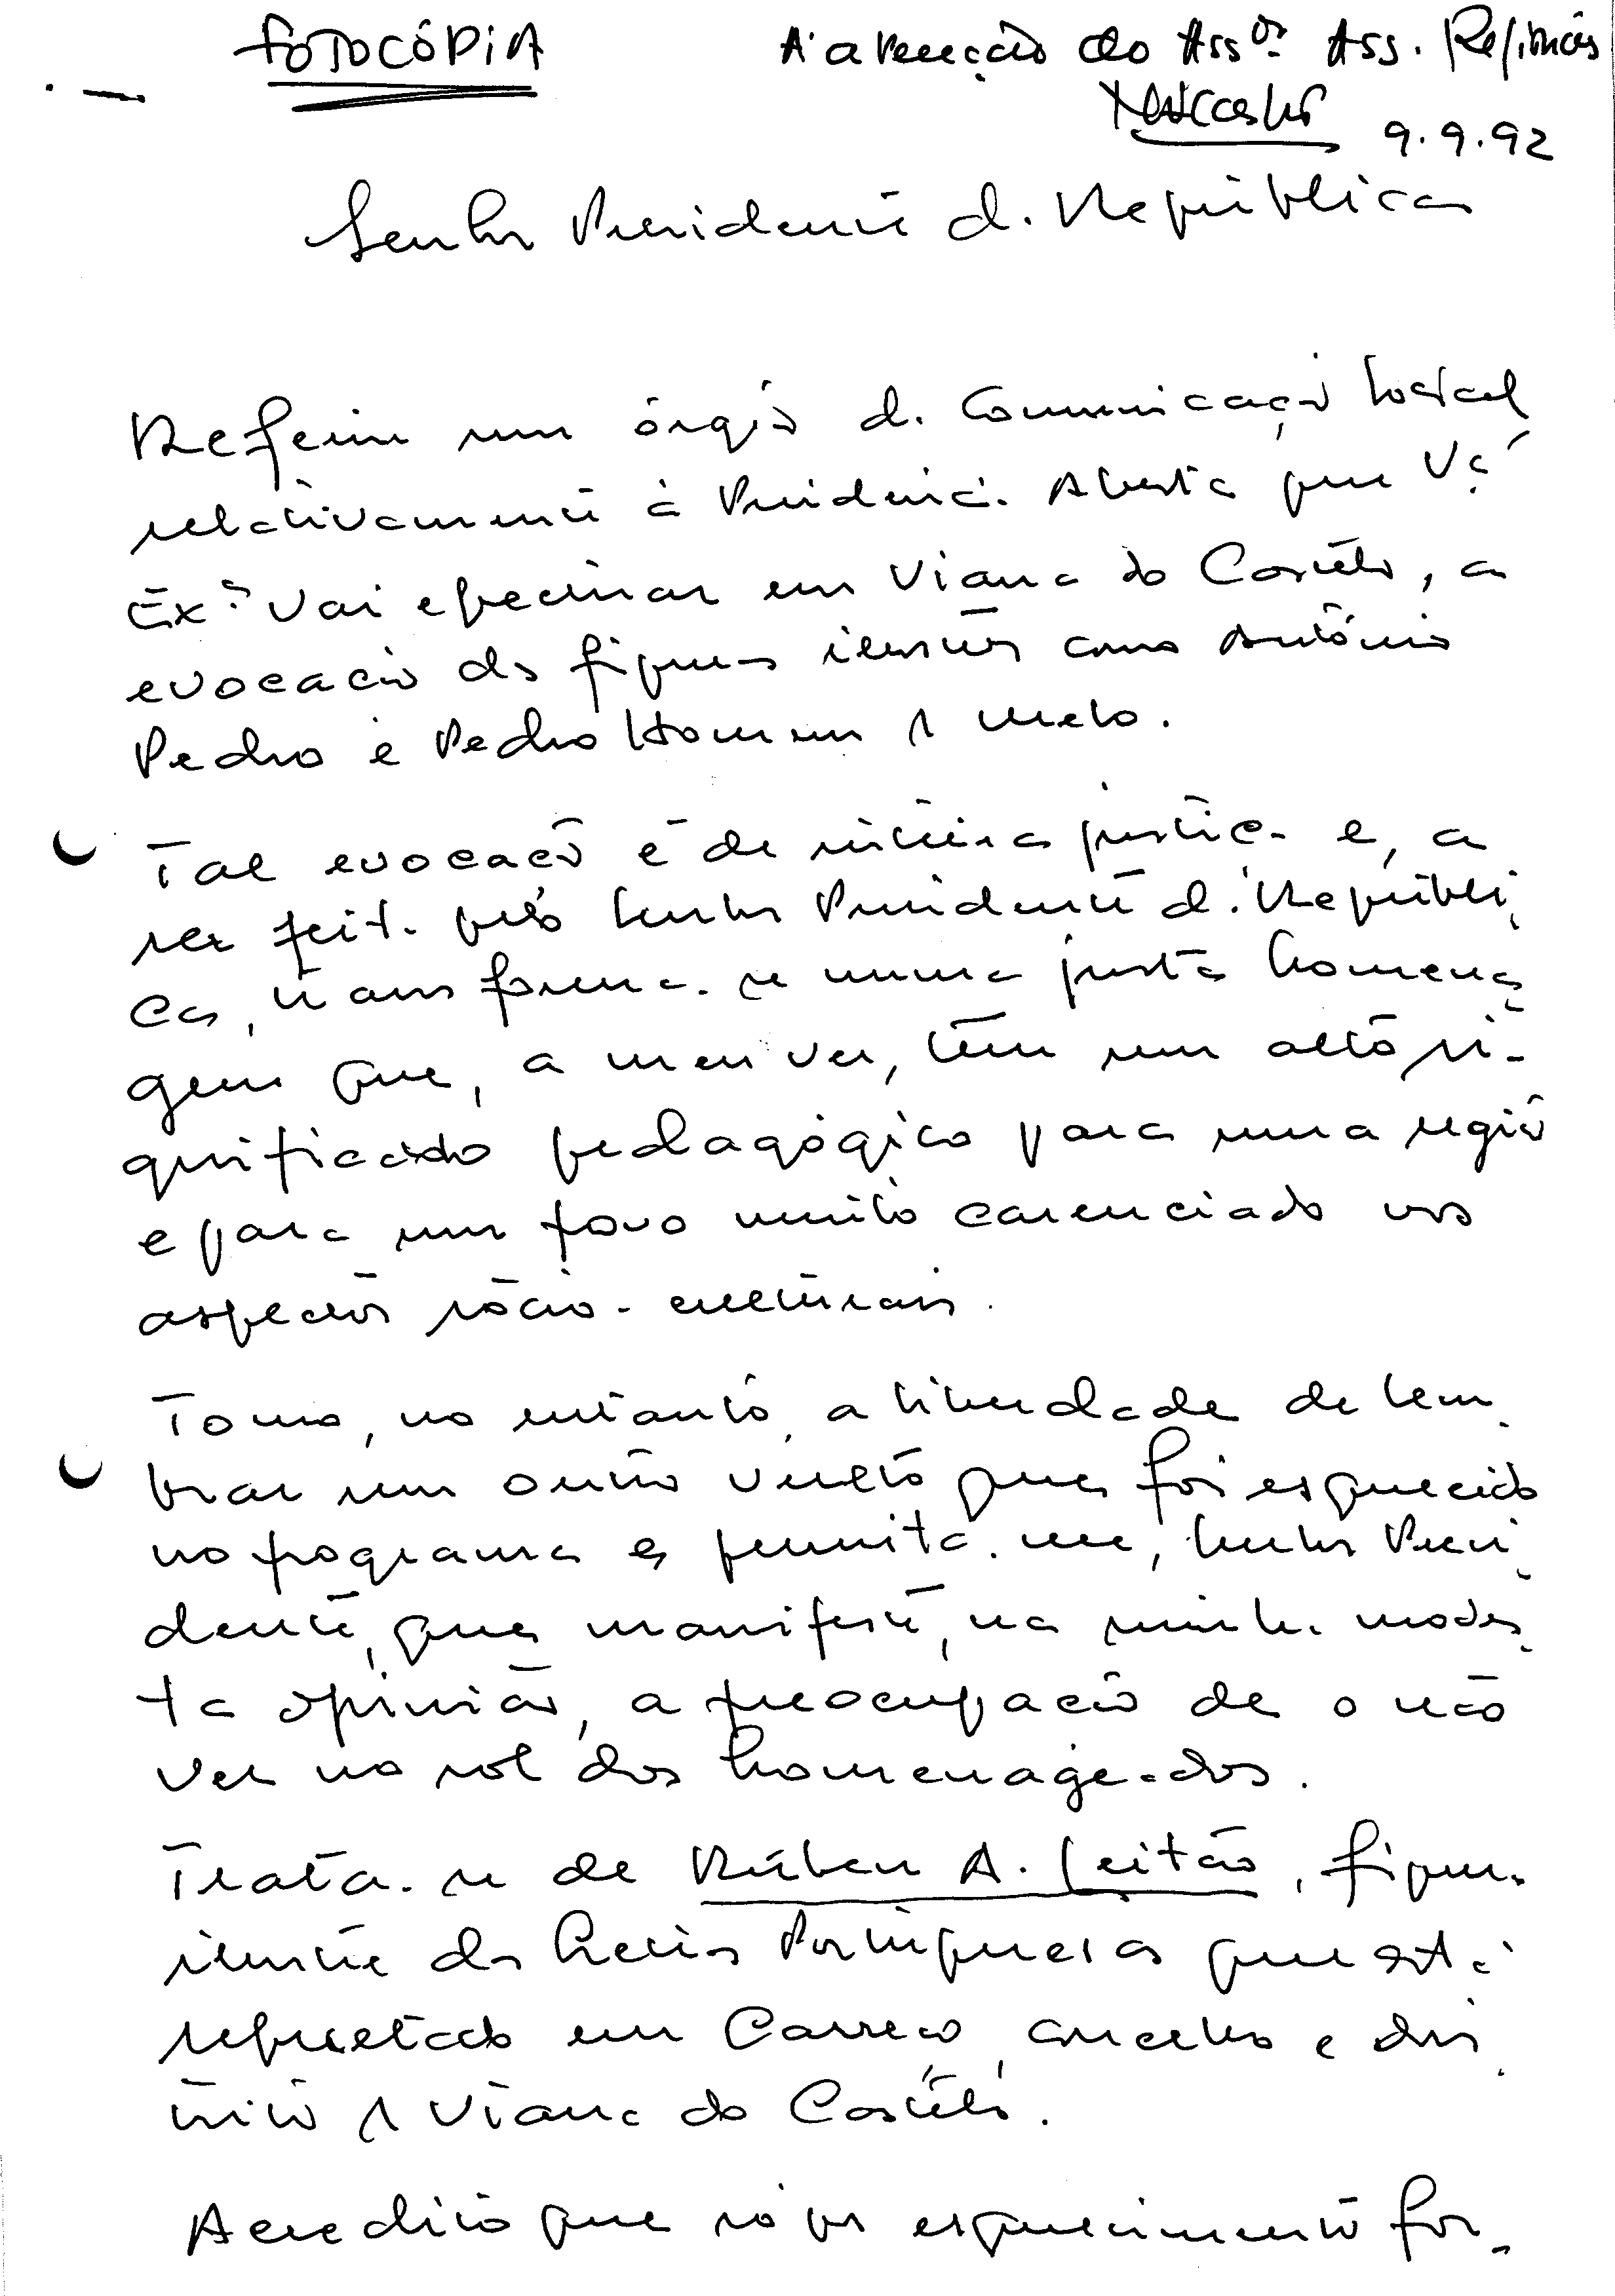 FOTOCÓPIA
À atenção do Assor. Ass.
9.9.92
Senhor Presidente da República
Referiu um órgão de Comunicação Social
relativamente à Presidência Aberta que Vª
Exª vai efectuar em Viana do Castelo, a
evocação de figuras ilustres como António
Pedro e Pedro Homem de Melo.
Tal evocação é de inteira justiça e, a
ser feita pelo Senhor Presidente da Repúbli-
ca, transforma-se numa justa homena-
gem que, a meu ver, têm um alto si-
gnificado pedagógico para uma região
e para um povo muito carenciado nos
aspectos sócio-culturais.
Tomo, no entanto, a liberdade de lem-
brar um outro vulto que foi esquecido
no programa e permita-me, Senhor Presi-
dente, que manifeste, na minha modes-
ta opinião, a preocupação de o não
ver no rol dos homenageados.
Trata-se de Rúben A. Leitão, figura
ilustre das Letras Portuguesas que está
sepultado em Carreço, concelho e dis-
trito de Viana do Castelo.
Acredito que só por esquecimento foi